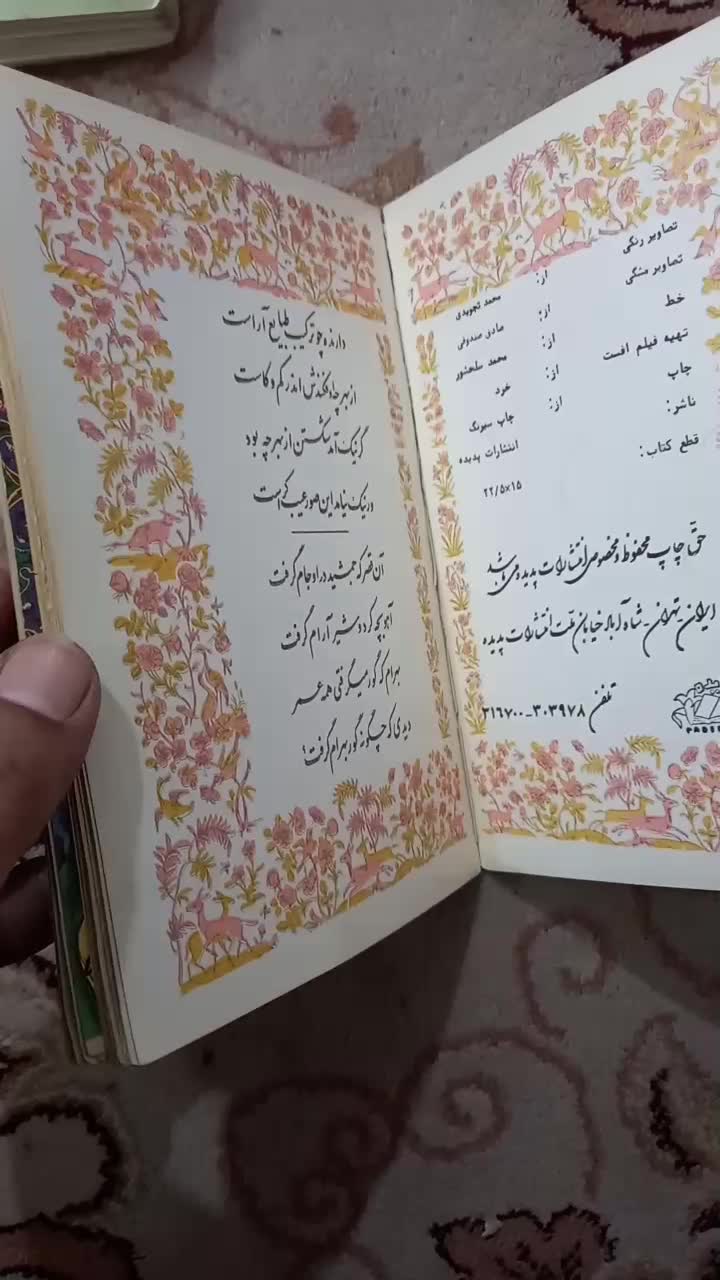 تصاویر رنگی از: محمد تجویدی
تصاویر مشگی از: صادق صندوقی
خط از: محمد سلحشور
تهیه فیلم افست از: خرد
چاپ از: چاپ سپرنگ
ناشر: انتشارات پدیده
قطع کتاب: ۲۲/۵×۱۵
حق چاپ محفوظ و مخصوص انتشارات پدیده می‌باشد
ایران - تهران - شاه‌آباد خیابان ملت انتشارات پدیده
تلفن ۳۰۳۹۷۸-۳۱۶۷۰۰
دارنده چو ترکیب طبایع آراست
از بهر چه او فکندش اندر کم و کاست
گر نیک آمد شکستن از بهر چه بود
ور نیک نیامد این صور عیب کراست
آن قصر که جمشید در او جام گرفت
آهو بچه کرد و شیر آرام گرفت
بهرام که گور میگرفتی همه عمر
دیدی که چگونه گور بهرام گرفت؟